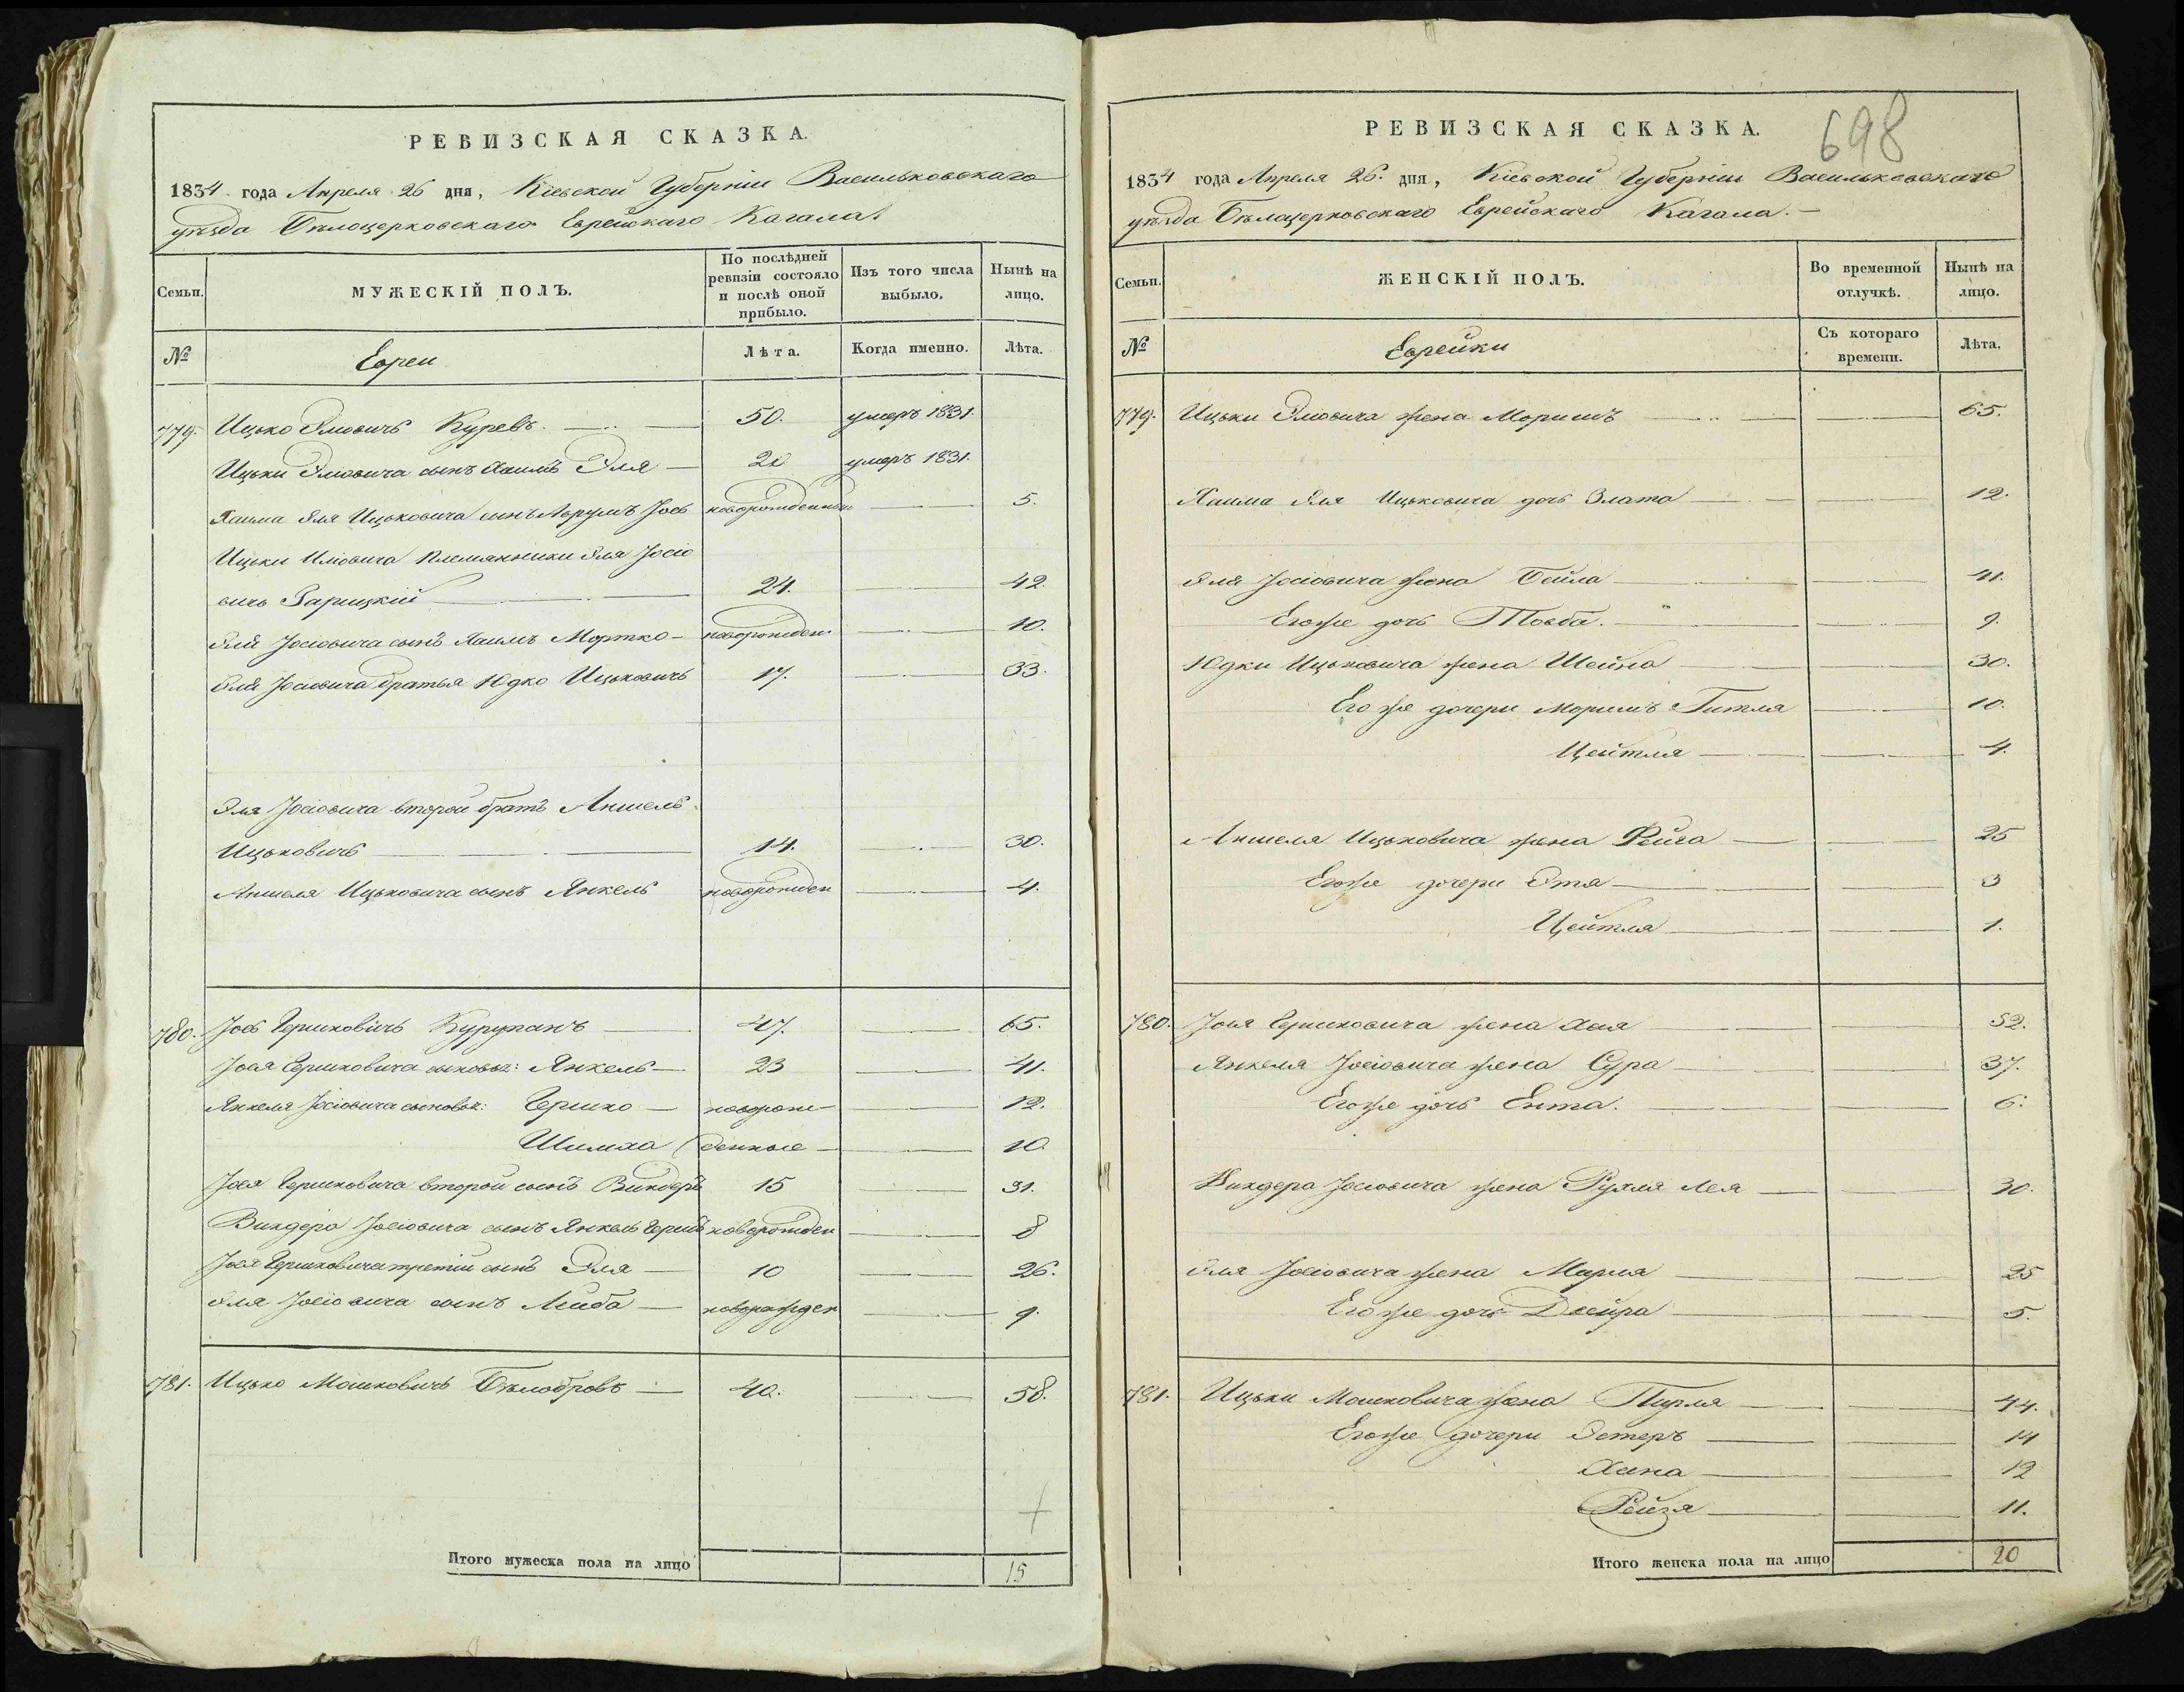 РЕВИЗСКАЯ СКАЗКА.
1834 года Апреля 26 дня, Кіевской Губерніи Васильковскаго
уѣзда Бѣлоцерковскаго Еврейскаго Кагала.
Семьи.
МУЖЕСКІЙ ПОЛЪ.
По послѣдней ревизіи состояло и послѣ оной прибыло.
Изъ того числа выбыло.
Нынѣ на лицо.
№
Евреи
Лѣта.
Когда именно.
Лѣта.
779. Ицько Элиовичъ 50. умеръ 1831.
Ицьки Элиовича сынъ Хаимъ Эля 20 умеръ 1831.
Хаима Эля Ицьковича сынъ Аврумъ Іось новорожденный 5.
Ицьки Иліовича племянники Эля Іосіо
вичъ 24. 42.
Эля Іосіовича сынъ Хаимъ Мортко новорожден 10.
Эля Іосіовича братья Юдко Ицьковичъ 17. 33.
Эля Іосіовича второй братъ Аншель
Ицьковичъ 14. 30.
Аншеля Ицьковича сынъ Янкель новорожден 4.
780. Іось Гершковичъ 47. 65.
Іося Гершковича сыновья: Янкель 23 41.
Янкеля Іосіовича сыновья: Гершко новорож- 12.
Шимха денные 10.
Іося Гершковича второй сынъ Виндеръ 15 31.
Виндера Іосіовича сынъ Янкель Гершъ новорожден 8
Іося Гершковича третій сынъ Эля 10 26.
Эля Іосіовича сынъ Лейба новорожден 9.
781. Ицько Мошковичъ Бѣлобровъ 40. 58.
Итого мужеска пола на лицо 15
РЕВИЗСКАЯ СКАЗКА.
698
1834 года Апреля 26. дня, Кіевской Губерніи Васильковскаго
уѣзда Бѣлацерковскаго Еврейскаго Кагала.
Семьи.
ЖЕНСКІЙ ПОЛЪ.
Во временной отлучкѣ.
Нынѣ на лицо.
№
Еврейки
Съ котораго времени.
Лѣта.
779. Ицьки Элиовича жена Моримъ 65.
Хаима Эля Ицьковича дочь Злата 12.
Эля Іосіовича жена Бейла 41.
Егоже дочь Товба. 9.
Юдки Ицьковича жена Шейна 30.
Его же дочери Моримъ Гитля 10.
Цейтля 4.
Аншеля Ицьковича жена Фейга 25
Егоже дочери Эта 3
Цейтля 1.
780. Іося Гершковича жена Хая 52.
Янкеля Іосіовича жена Сура 37.
Егоже дочь Ента. 6.
Виндера Іосіовича жена Рухля Лея 30.
Эля Іосіовича жена Марля 25
Егоже дочь Двейра 5.
781. Ицьки Мошковича жена Пирля 44.
Егоже дочери Эстеръ 14
Хана 12
Рейзя 11.
Итого женска пола на лицо 20